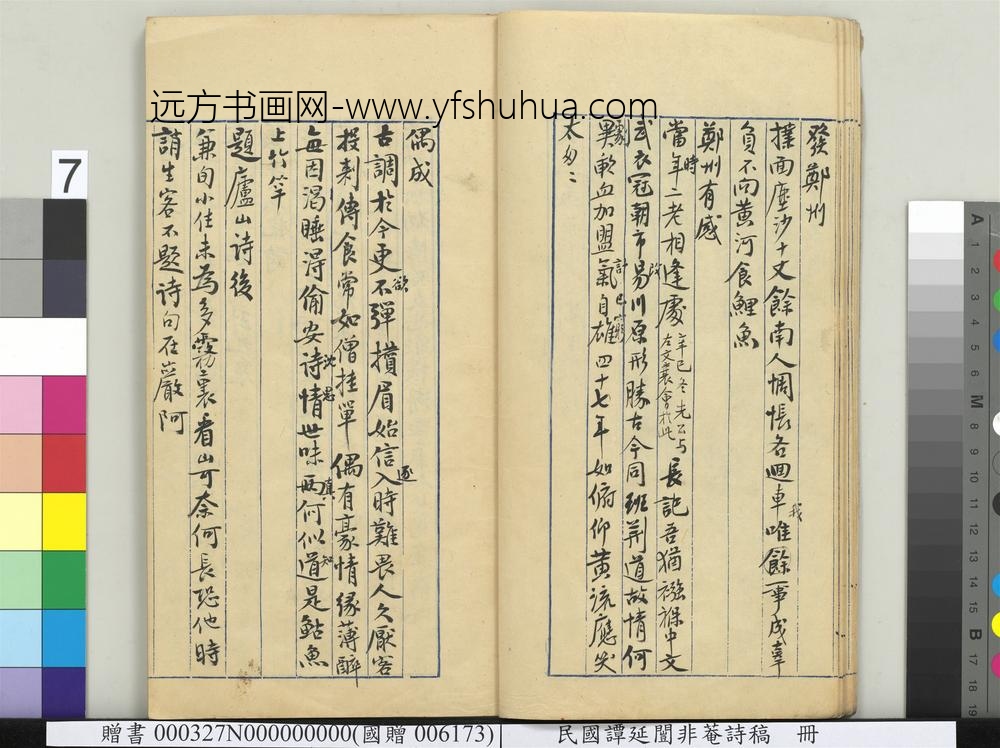 远方书画网-www.yfshuhua.com
發鄭州
撲面塵沙十丈餘南人惆悵各迴車唯餘一事成辜
我
負不向黃河食鯉魚
鄭州有感
當年二老相逢處辛巳冬先公與左文襄會於此長記吾猶襁褓中文
時
武衣冠朝市易川原形勝古今同班荊道故情何
改
劇
異歃血加盟氣自雄四十七年如俯仰黃流應笑
計已窮
太匆匆
偶成
古調於今更不彈攢眉始信入時難畏人久厭客
欲
逐
投刺傳食常如僧挂單偶有豪情緣薄醉
每因渴睡得偷安詩情世味兩何似道是鮎魚
沈思
真
知
上竹竿
題廬山詩後
兼旬小住未為多霧裏看山可奈何長恐他時
誚生客不題詩句在巖阿
7
A
1
2
3
4
5
M
8
9
10
11
12
13
14
15
B
17
18
19
贈書 000327N000000000(國贈 006173)
民國譚延闓非菴詩稿 冊